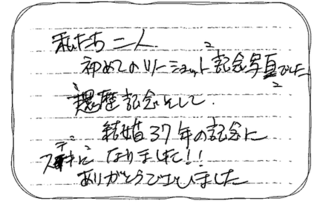 私たち二人
初めてのツーショット記念写真でした
還暦記念として
結婚37年の記念に
ステキに なりました!!
ありがとうございました